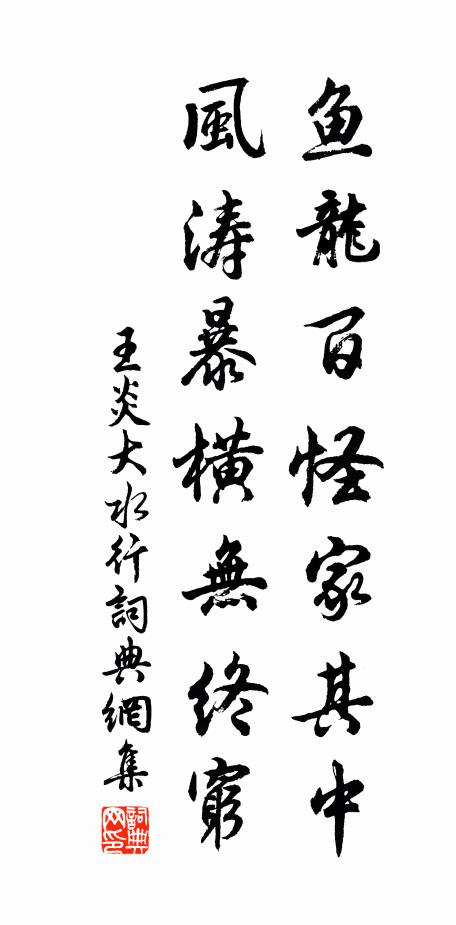 鱼龍百怪家其中
風涛暴橫無終窮
王炎大水行詞典網集
詞典网印